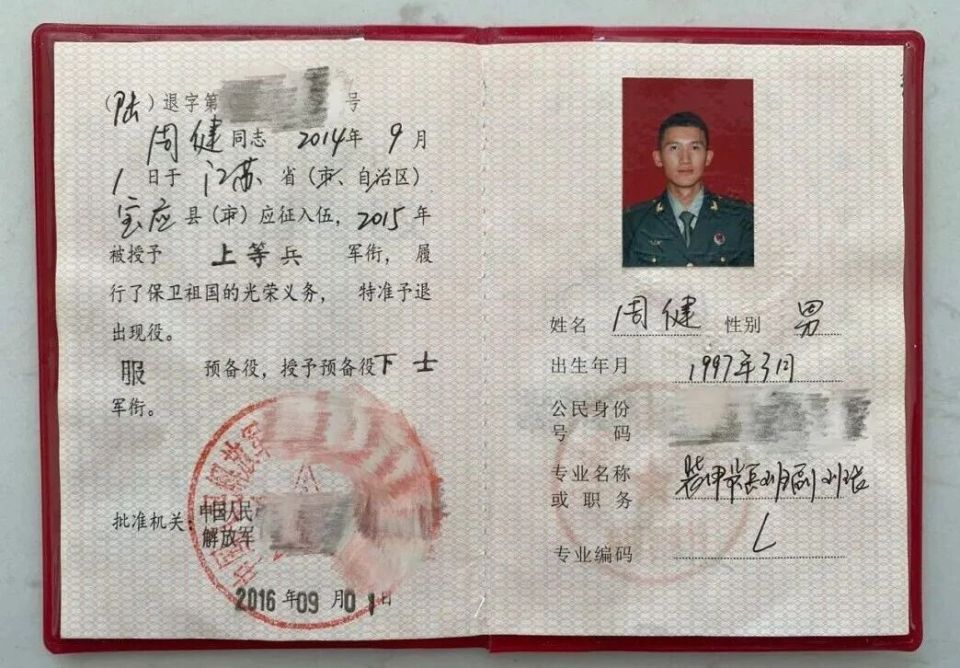 （陆）退字第 号
周健同志 2014年 9 月
1 日于 江苏 省（市、自治区）
宝应 县（市）应征入伍，2015 年
被授予 上等兵 军衔， 履
行了保卫祖国的光荣义务， 特准予退
出现役。
服 预备役，授予预备役下士
军衔。
批准机关：中国人民
解放军
2016 年09 月01日
姓名 周健 性别 男
出生年月 1997年3月
公民身份
号 码
专业名称
或 职 务
专业编码